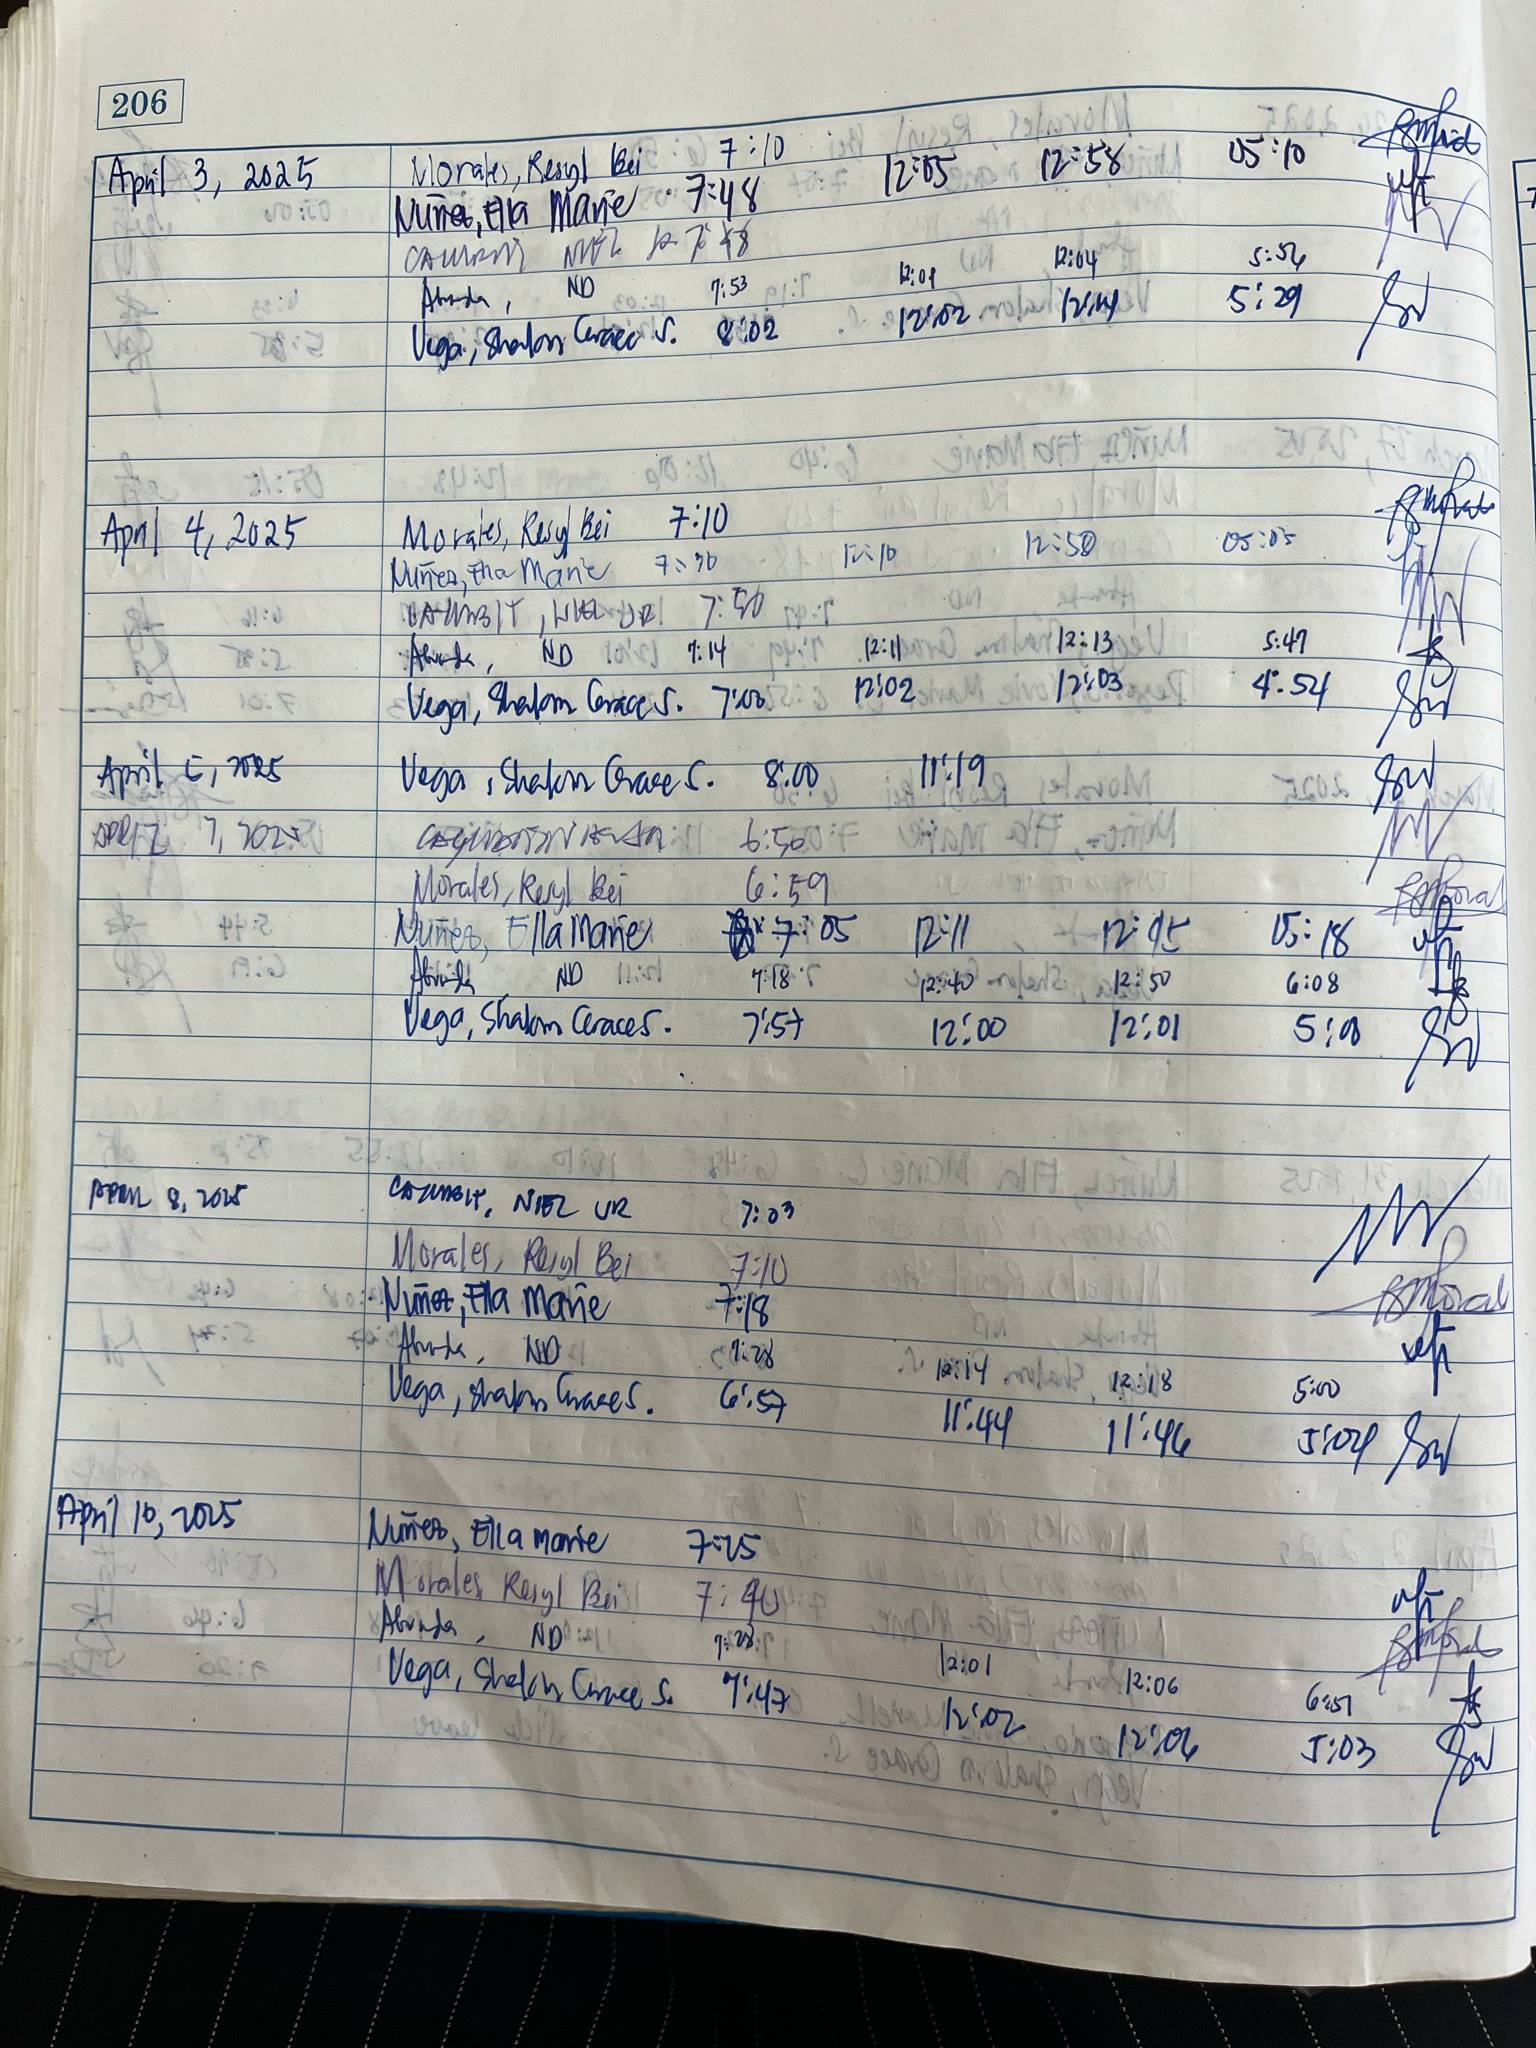 206
April 3, 2025 Morales, Resyl Bei 7:10
Nuñez, Ella Marie 7:48 12:05 12:58 05:10
7:48
Abunda, ND 7:53 12:01 12:04 5:56
Vega, Shalom Grace S. 8:02 12:02 12:04 5:29
April 4, 2025 Morales, Resyl Bei 7:10
Nuñez, Ella Marie 7:30 12:10 12:50 05:05
CAHUMBIT, NIEL JR 7:50
Abunda, ND 7:14 12:11 12:13 5:47
Vega, Shalom Grace S. 7:00 12:02 12:03 4:54
April 5, 2025 Vega, Shalom Grace S. 8:00 11:19
APRIL 7, 2025 6:56
Morales, Resyl Bei 6:59
Nuñez, Ella Marie 7:05 12:11 12:45 05:18
Abunda ND 7:18 12:40 12:50 6:08
Vega, Shalom Grace S. 7:57 12:00 12:01 5:08
APRIL 8, 2025 NIEL JR 7:03
Morales, Resyl Bei 7:10
Nuñez, Ella Marie 7:18
Abunda, ND 7:28 12:14 12:18 5:00
Vega, Shalom Grace S. 6:57 11:44 11:46 5:04
April 10, 2025 Nuñez, Ella Marie 7:25
Morales Resyl Bei 7:40
Abunda, ND 7:28 12:01 12:06 6:51
Vega, Shalom Grace S. 7:47 12:02 12:06 5:03